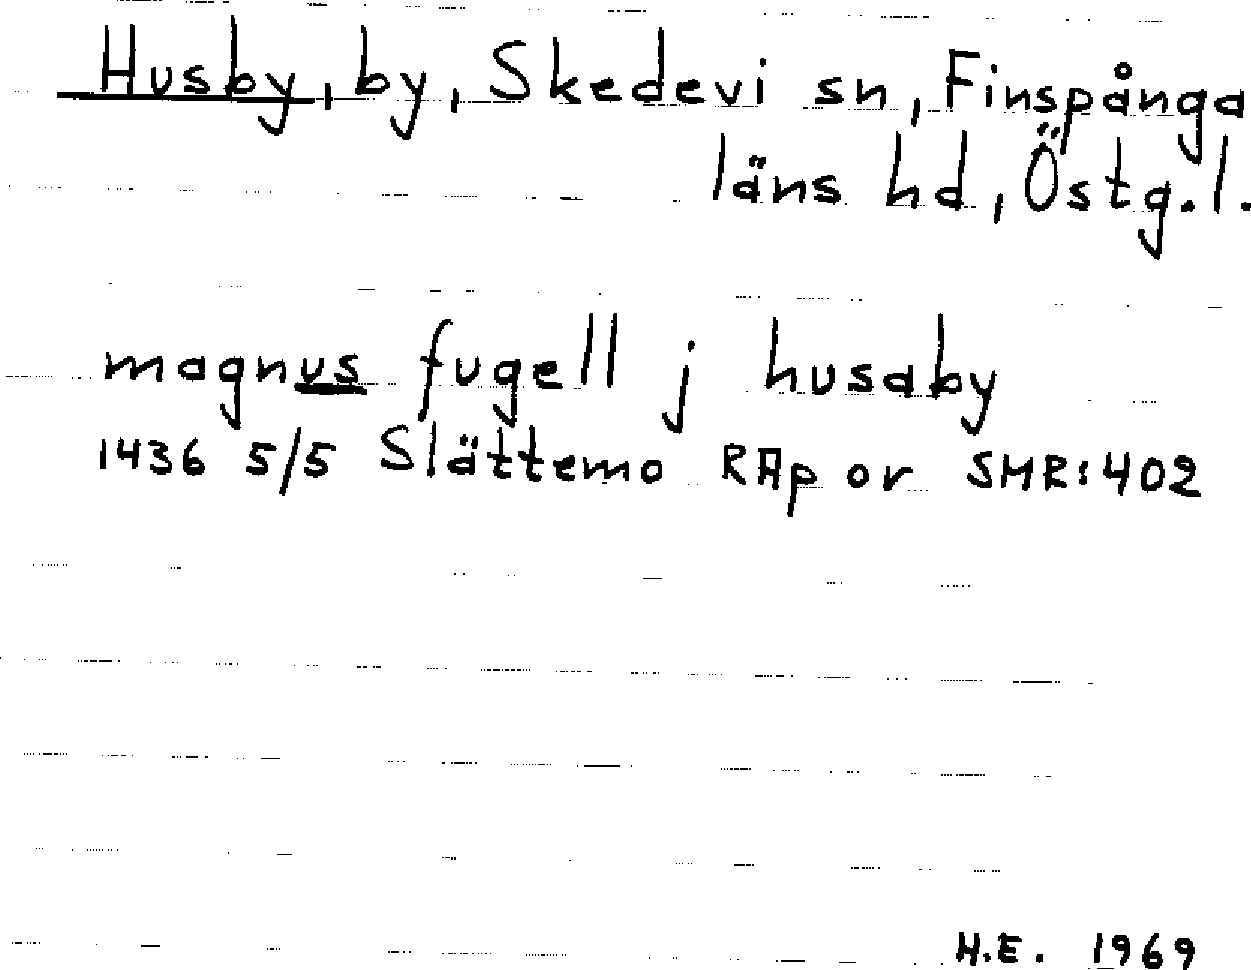 Husby, by, Skedevi sn, Finspånga
läns hd, Östg.l.
magnus fugell j husaby
1436 5/5 Slättemo RAp or SMR:402
H.E. 1969